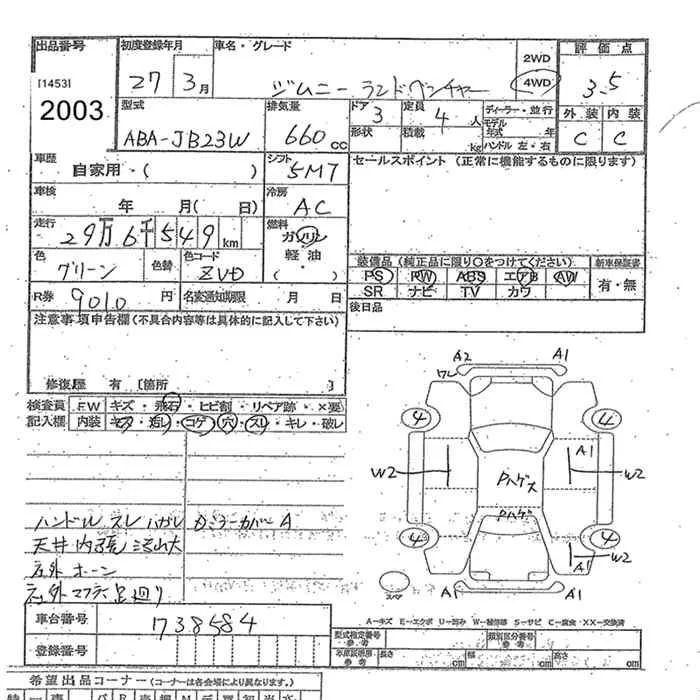 出品番号 初度登録年月 車名・グレード 2WD 評価点
[1453] 27 3月 ジムニー ランドベンチャー 4WD 3.5
2003 型式 排気量 ドア 3 定員 4人 ディーラー・並行 外装 内装
ABA-JB23W 660cc 形状 積載 kg モデル年式 年 C C
ハンドル 左・右
車歴 自家用・( ) シフト 5MT セールスポイント (正常に機能するものに限ります)
車検 年 月( 日) 冷房 AC
走行 29万6千549km 燃料 ガソリン
軽油
( )
色 グリーン 色替 色コード ZVD 装備品 (純正品に限り○をつけてください) 新車保証書
PS PW ABS エアB AW 有・無
R券 9010円 名変通知期限 月 日 SR ナビ TV カワ
後日品
注意事項申告欄 (不具合内容等は具体的に記入して下さい)
修復歴 有 [箇所 ]
検査員 F.W キズ・飛石・ヒビ割・リペア跡・×要
記入欄 内装 キズ・汚レ・コゲ・穴・スレ・キレ・破レ
A2 A1
ワレ
4 4
A1
W2 W2
Pハゲス
Pハゲ
ハンドル スレ ハガレ ミラーカバー A
天井 内張 汚レ大
社外 ホーン
社外 マフラー 足廻り
4 4
W2
A1
スペア A1 A1
A-キズ E-エクボ U-凹み W-補修跡 S-サビ C-腐食 ・XX-交換済
車台番号 738584
登録番号
型式指定番号 参考 類別区分番号 参考
車庫証明用 参考 長さ cm 幅 cm 高さ cm
希望出品コーナー (コーナーは各会場により異なります。)